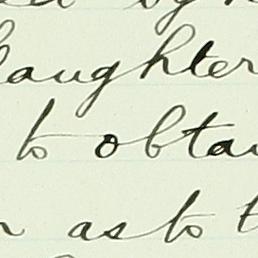 laughter
to obtai
as to t